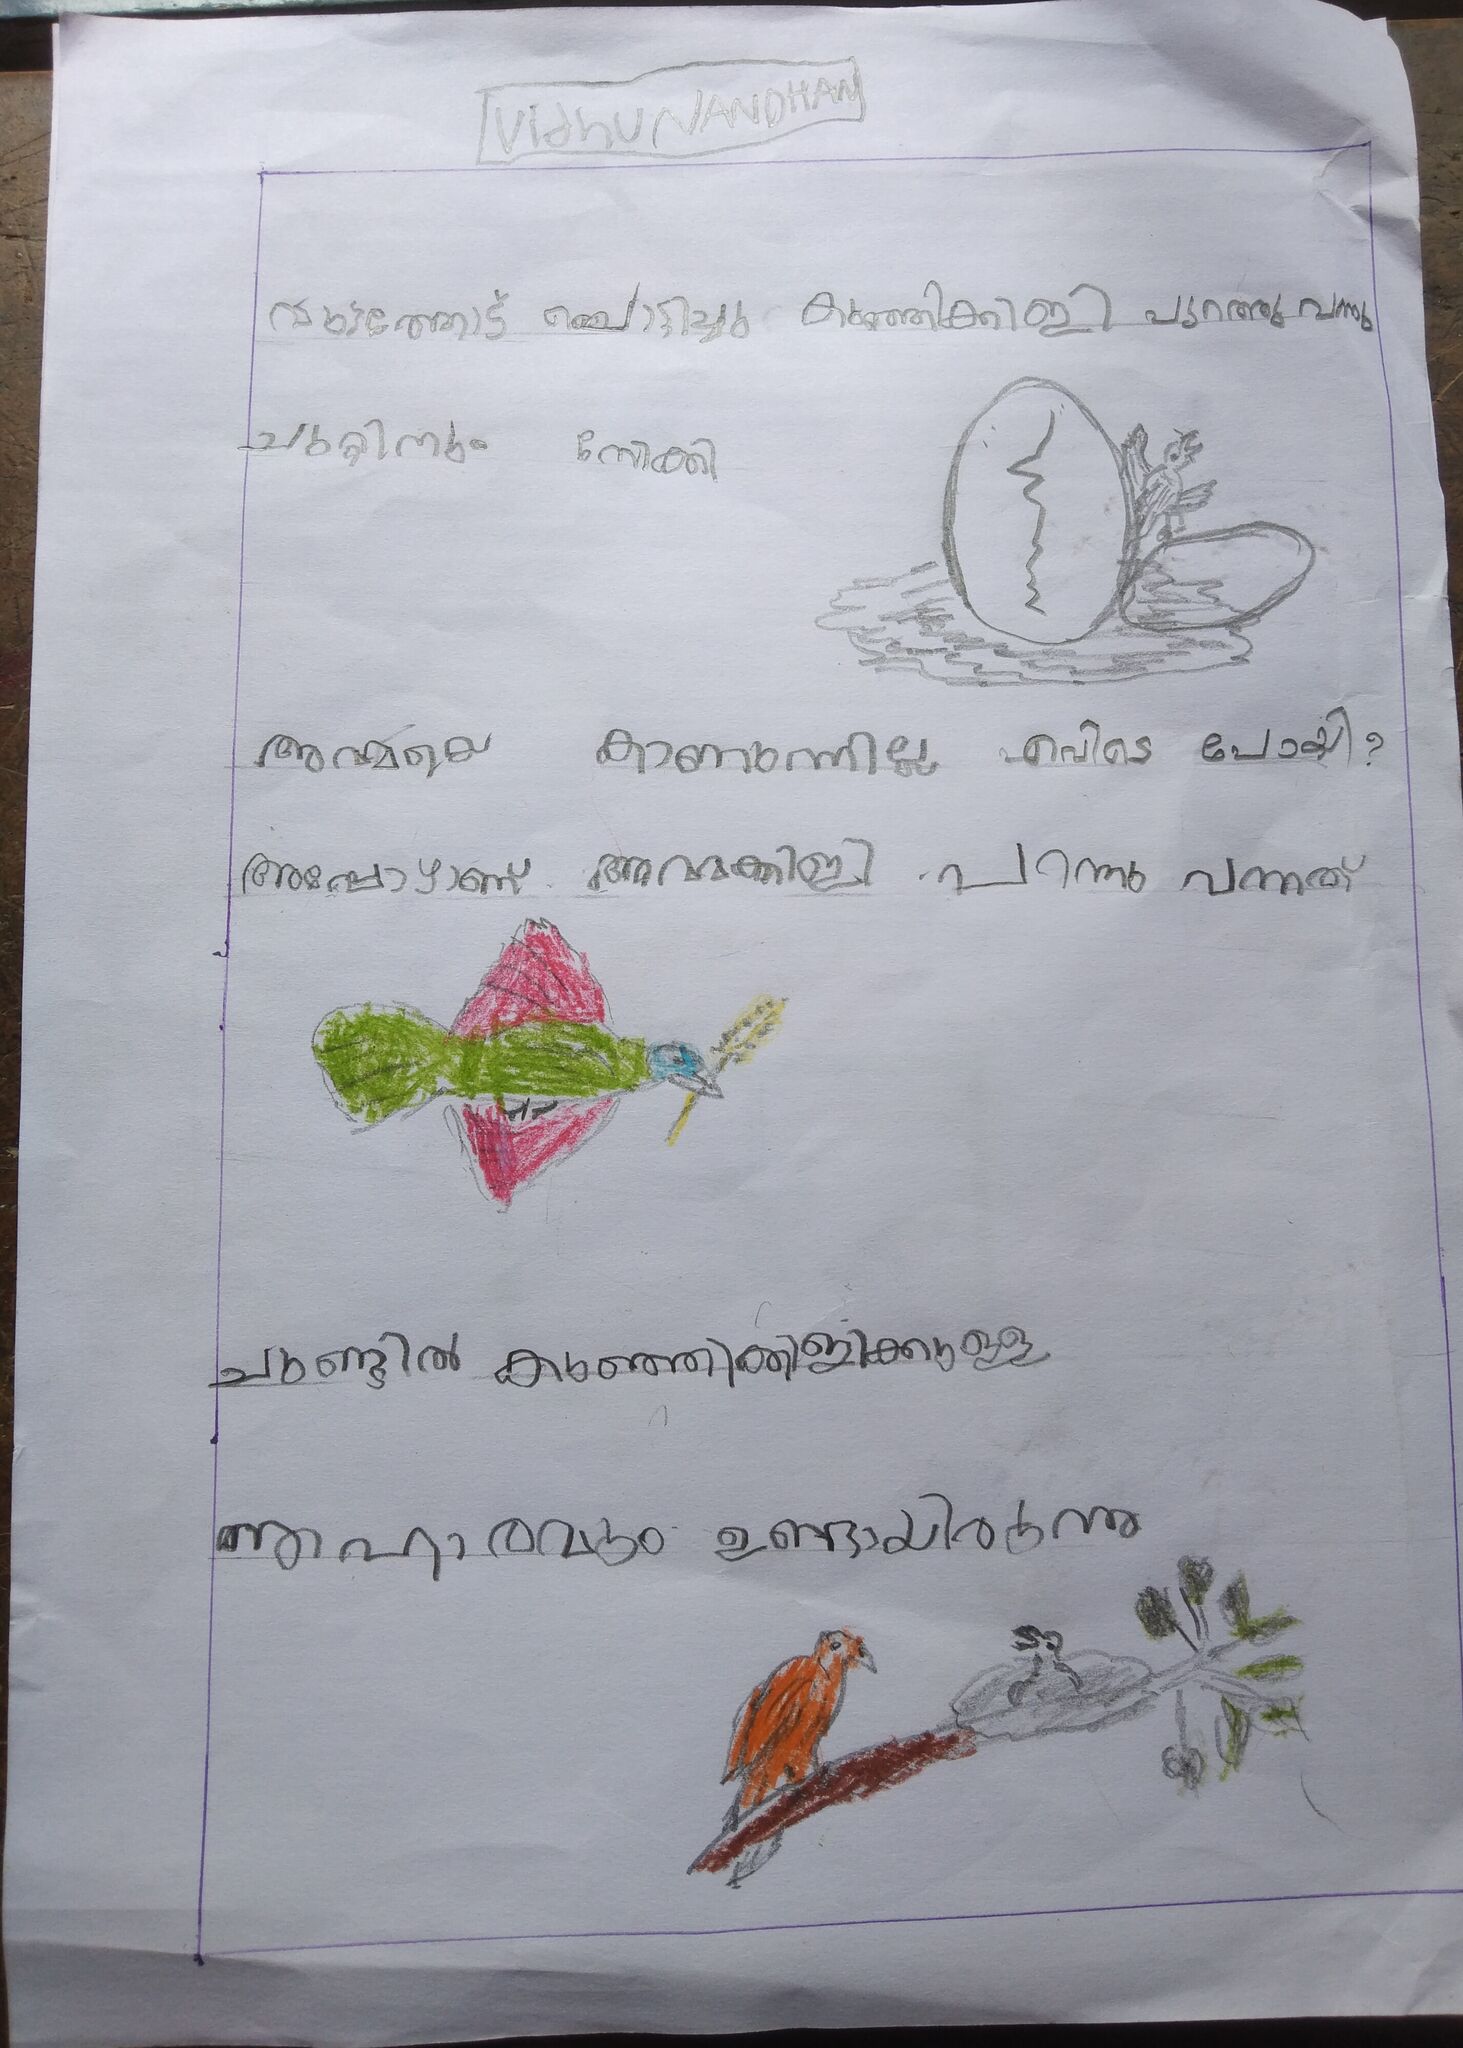 VIdhu NANDHAN
പൊട്ടിച്ചു കുഞ്ഞിക്കിളി പുറത്തു വന്നു
ചുറ്റിനും നോക്കി
അമ്മയെ കാണുന്നില്ല എവിടെ പോയി?
അപ്പോഴാണ് അമ്മക്കിളി പറന്നു വന്നത്
ചുണ്ടിൽ കുഞ്ഞിക്കിളിക്കുള്ള
ആഹാരവും ഉണ്ടായിരുന്നു